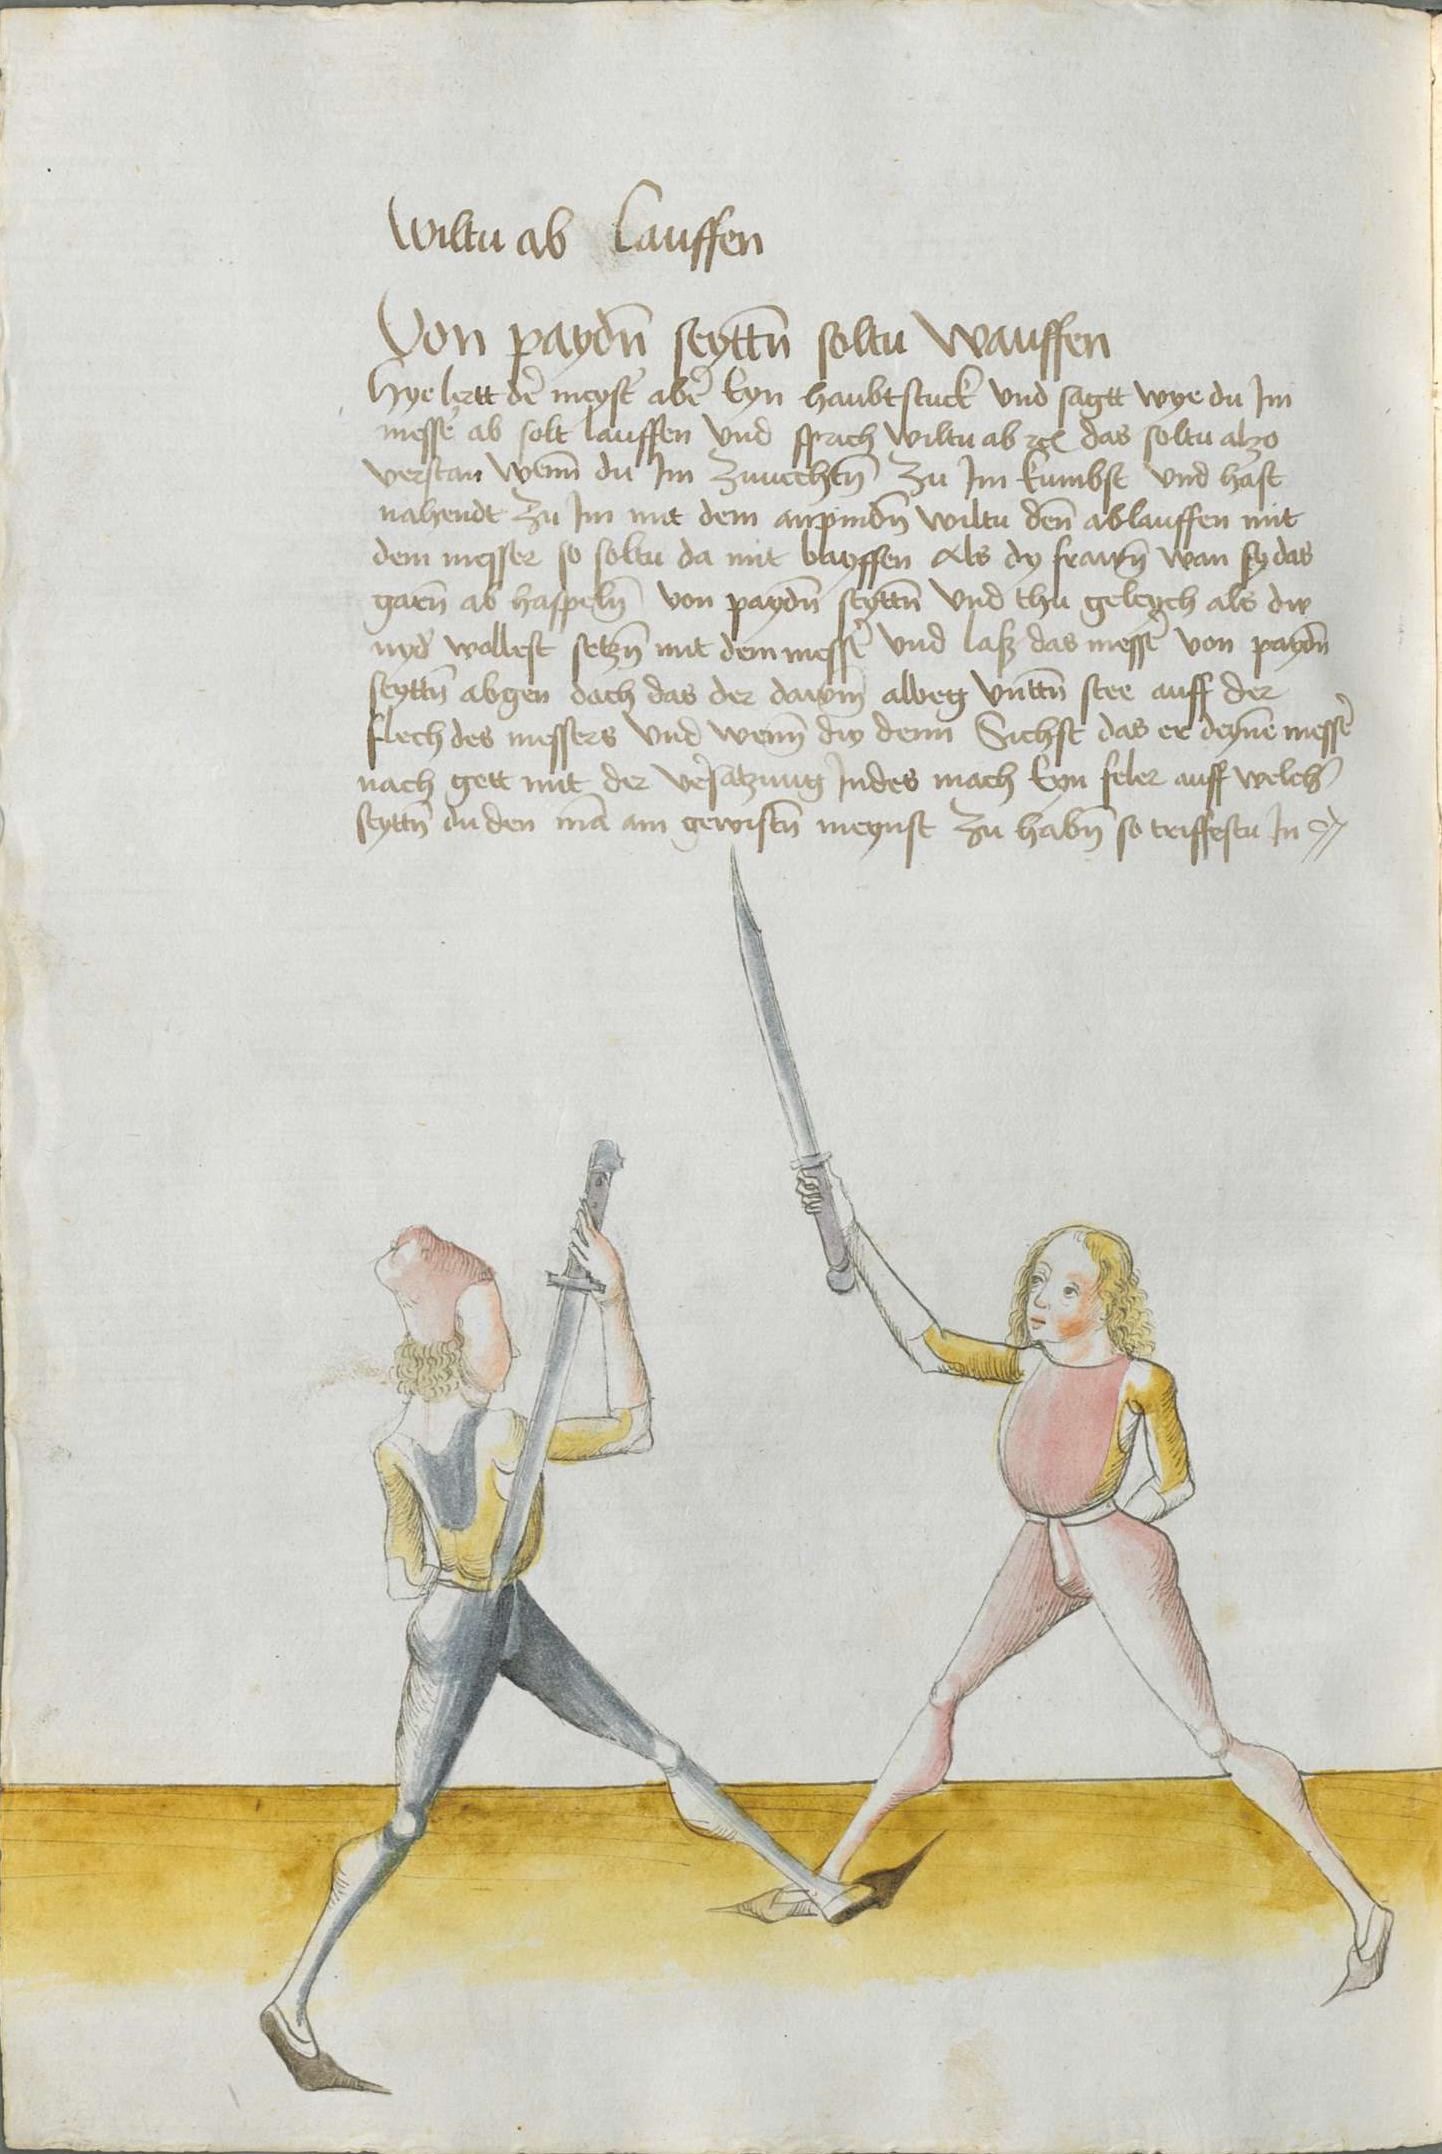 Wiltu ab lauffen
Von paydn̄ seyttn̄ soltu wauffen
Hye lertt de᷑ meyst᷑ abe᷑ Eyn haubtstuck und sagtt wye du Im
messe᷑ ab solt lauffen und sprich wiltu ab ꝛcꝭ das soltu alzo
verstan wenn̄ du Im zuuechtn̄ zu Im kumbst und hast
nahendt zu Im mit dem anpindn̄ wiltu den̄ ablauffen mit
dem messer so soltu da mit wayffen Als dy frawn̄ wan sy das
garn̄ ab haspeln̄ von paydn̄ seyttn̄ und thu geleych als dw
nyd᷑ wollest setzn̄ mit dem messe᷑ und laß das messe᷑ von paydn̄
seyttn̄ abgen doch das der dawm̄ alweg unttn̄ stee auff der
flech des messers und wenn̄ dw denn Sichst das er deyne᷑ messe᷑
nach gett mit der ve᷑satzung Indes mach Eyn feler auff welch᷑
seyttn̄ du den mā am gewistn̄ meynst zu habn̄ so triffestu In